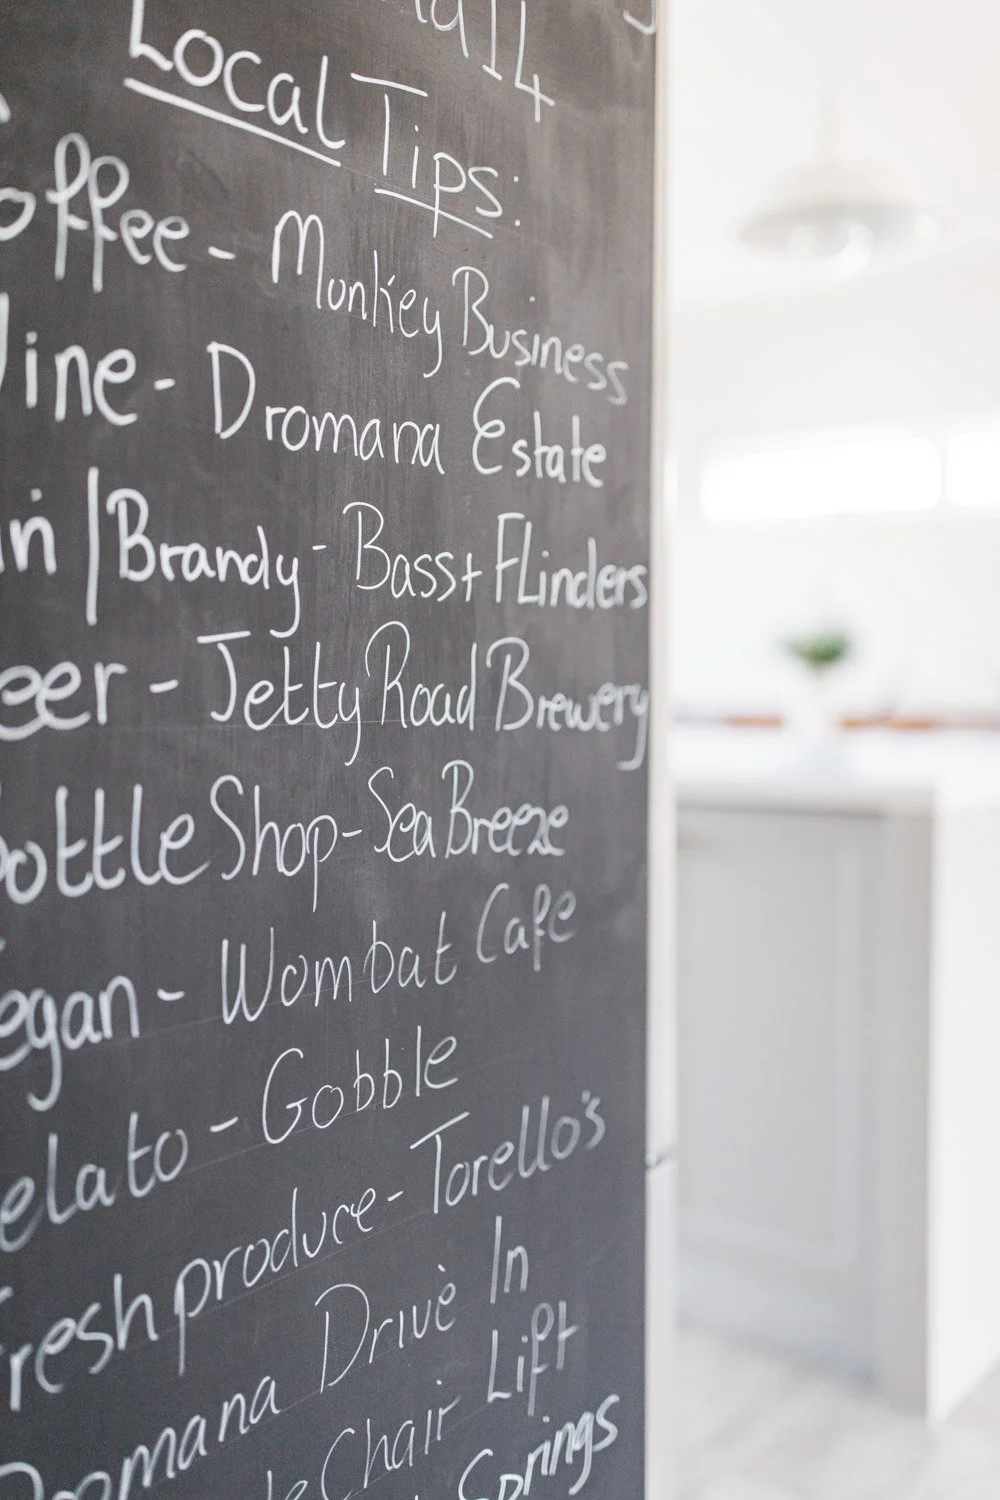 Local Tips:
offee - Monkey Business
ine - Dromana Estate
in | Brandy - Bass + Flinders
eer - Jetty Road Brewery
ottle Shop - Sea Breeze
egan - Wombat Cafe
elato - Gobble
resh produce - Torello's
Dromana Drive In
le Chair Lift
Springs